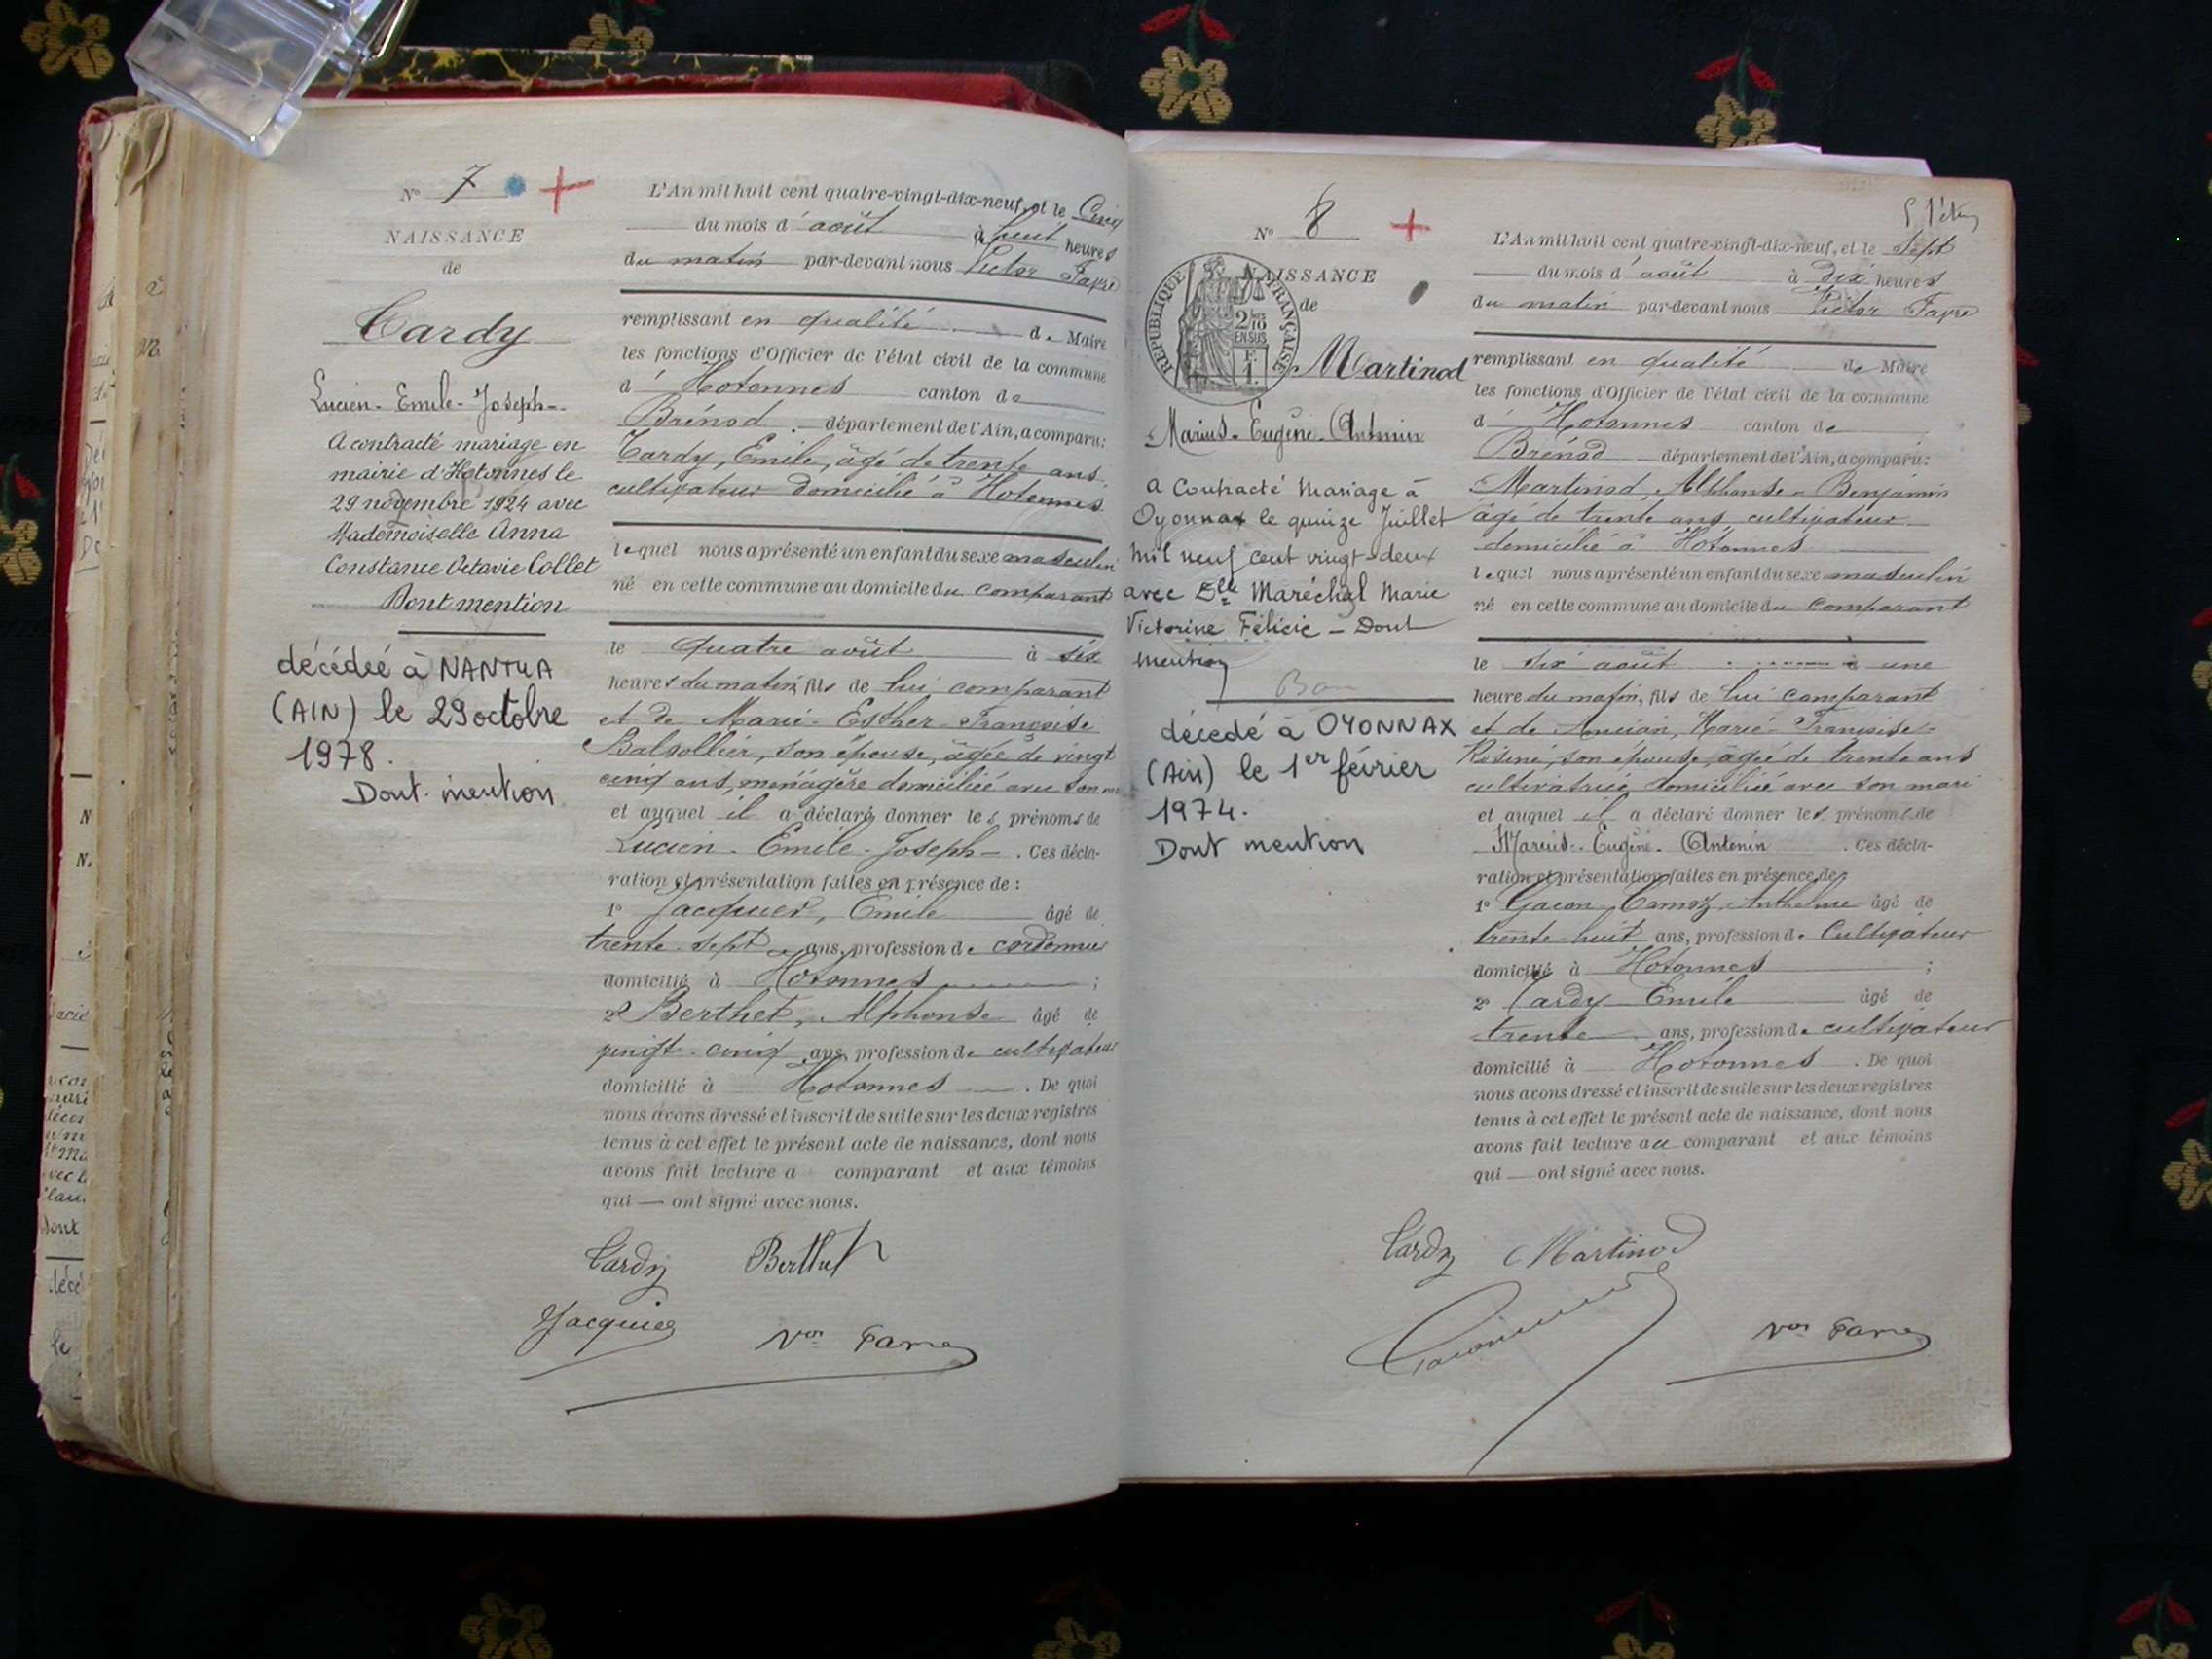 N° 7
NAISSANCE
de
Tardy
Lucien-Emile-Joseph-
A contracté mariage en
mairie d'Hotonnes le
29 novembre 1924 avec
Mademoiselle Anna
Constance Octavie Collet
Dont mention
décédé à NANTUA
(AIN) le 29 octobre
1978.
Dont mention
L'An mil huit cent quatre-vingt-dix-neuf, et le Cinq
du mois d'août à huit heures
du matin par-devant nous Victor Favre
remplissant en qualité de Maire
les fonctions d'Officier de l'état civil de la commune
d'Hotonnes canton de
Brénod département de l'Ain, a comparu:
Tardy, Emile, âgé de trente ans
cultivateur domicilié à Hotonnes
lequel nous a présenté un enfant du sexe masculin
né en cette commune au domicile du comparant
le quatre août à six
heures du matin, fils de lui comparant
et de Marie-Esther-Françoise
son épouse, âgée de vingt
cinq ans, ménagère domiciliée avec son
et auquel il a déclaré donner les prénoms de
Lucien-Emile-Joseph-. Ces décla-
ration et présentation faites en présence de:
1° Jacquier, Emile âgé de
trente-sept ans, profession de cordonnier
domicilié à Hotonnes ;
2° Berthet, Alphonse âgé de
vingt-cinq ans, profession de cultivateur
domicilié à Hotonnes. De quoi
nous avons dressé et inscrit de suite sur les deux registres
tenus à cet effet le présent acte de naissance, dont nous
avons fait lecture a comparant et aux témoins
qui — ont signé avec nous.
Tardy Berthet
Jacquier Vor Favre
N° 8
NAISSANCE
de
REPUBLIQUE FRANÇAISE
2/10
EN SUS
F.
1.
Martinod
Marius-Eugène-Antonin
a Contracté Mariage à
Oyonnax le quinze Juillet
mil neuf cent vingt-deux
avec Dlle Maréchal Marie
Victorine Félicie - Dont
mention
décédé à OYONNAX
(Ain) le 1er février
1974.
Dont mention
L'An mil huit cent quatre-vingt-dix-neuf, et le Sept
du mois d'août à dix heures
du matin par-devant nous Victor Favre
remplissant en qualité de Maire
les fonctions d'Officier de l'état civil de la commune
d'Hotonnes canton de
Brénod département de l'Ain, a comparu:
Martinod, Alphonse-Benjamin
âgé de trente ans, cultivateur
domicilié à Hotonnes
lequel nous a présenté un enfant du sexe masculin
né en cette commune au domicile du comparant
le six août à une
heure du matin, fils de lui comparant
et de Ancian, Marie-Françoise-
Rosine, son épouse, âgée de trente ans
cultivatrice domiciliée avec son mari
et auquel il a déclaré donner les prénoms de
Marius-Eugène-Antonin. Ces décla-
ration et présentation faites en présence de:
1° Gacon-Camoz, Anthelme âgé de
trente-huit ans, profession de Cultivateur
domicilié à Hotonnes ;
2° Tardy Emile âgé de
trente ans, profession de cultivateur
domicilié à Hotonnes. De quoi
nous avons dressé et inscrit de suite sur les deux registres
tenus à cet effet le présent acte de naissance, dont nous
avons fait lecture au comparant et aux témoins
qui — ont signé avec nous.
Tardy Martinod
Vor Favre